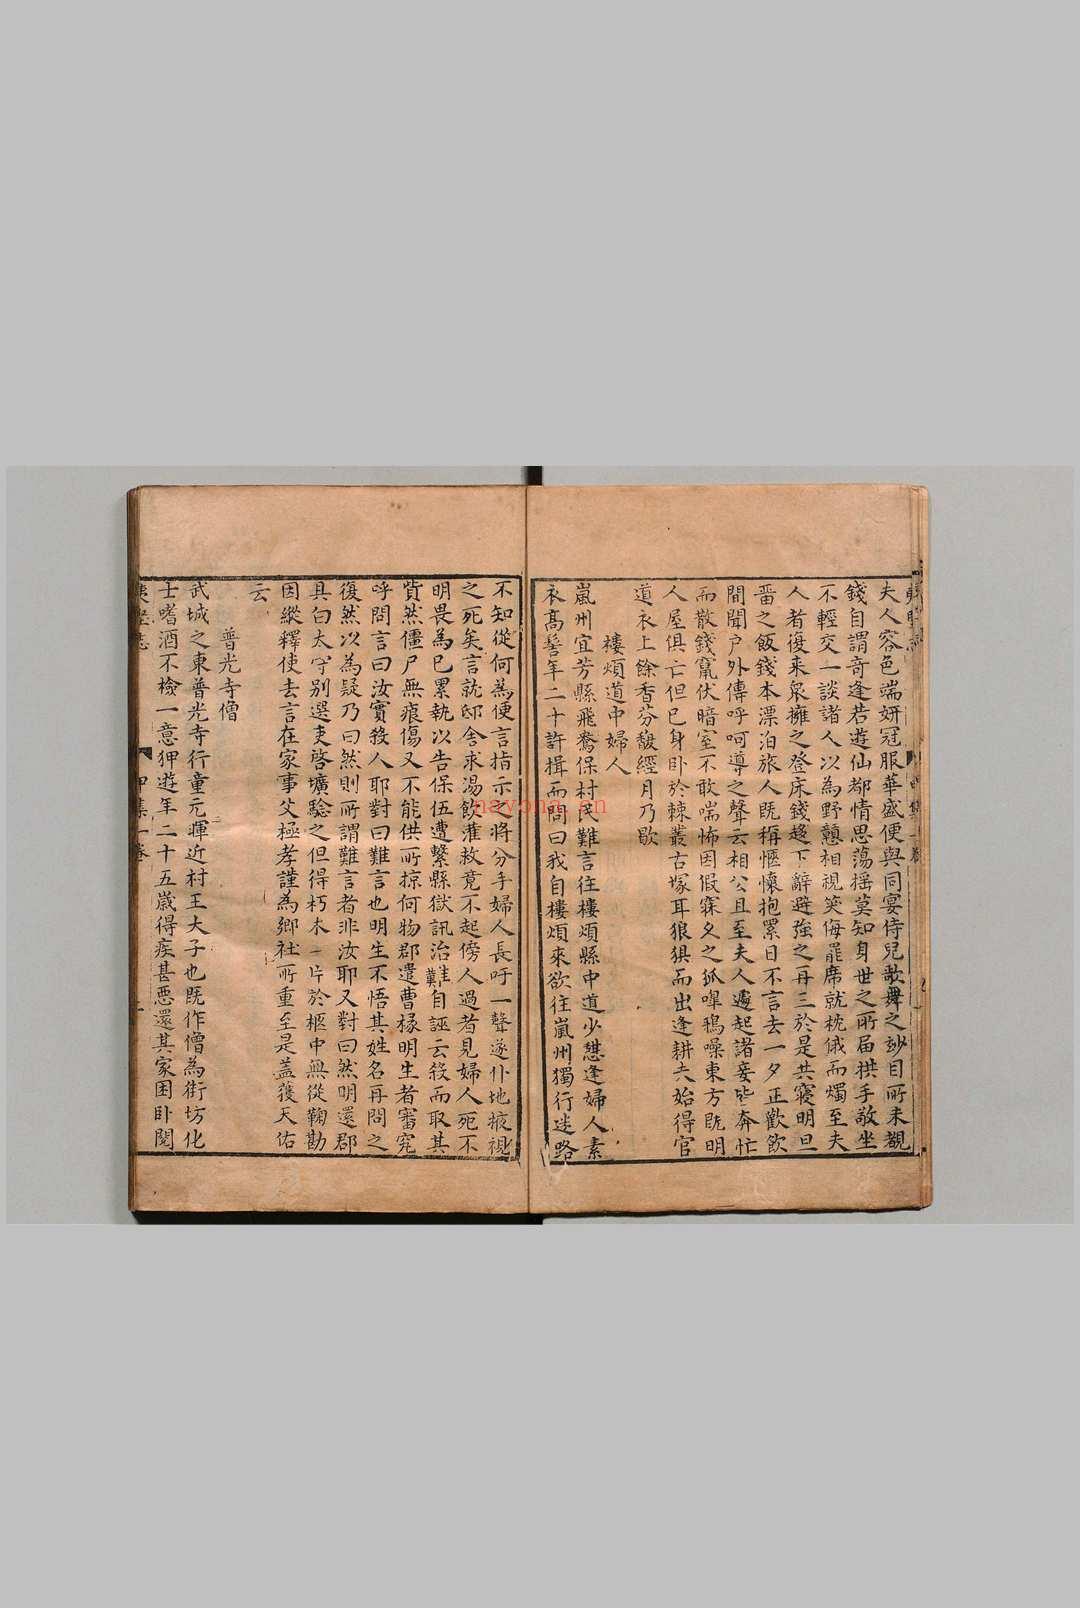 夫人容色端妍冠服華盛便與同宴侍兒歌舞之妙目所未覩
錢自謂奇逢若遊仙都情思蕩揺莫知身世之所届拱手敬坐
不輕交一談諸人以為野戇相視笑侮罷席就枕俄而燭至夫
人者復来泉擁之登床錢趍下辭避強之再三於是共寢明旦
畱之飯錢本漂泊旅人旣稱愜懷抱累日不言去一夕正歡飲
間聞户外傳呼呵導之聲云相公且至夫人遽起諸妾皆奔忙
而散錢竄伏暗室不敢喘怖因假寐夕之狐嗥鵶噪東方旣明
人屋俱亡但已身卧於棘叢古塚耳狼狽而出逢耕夫始得官
道衣上餘香芬馥經月乃歇
樓煩道中婦人
嵐州宜芳縣飛鳶保村民難言往樓煩縣中道少憇逢婦人素
衣髙髻年二十許揖而問曰我自樓煩來欲往嵐州獨行迷路
不知從何為便言指示之將分手婦人長吁一聲遂仆地掖視
之死矣言就邸舍求湯飲灌救竟不起傍人過者見婦人死不
明畏為已累執以告保伍遭繫縣獄訊治難自誣云殺而取其
貲然僵尸無痕傷又不能供所掠何物郡遣曹椽明生者審究
呼問言曰汝實殺人耶對曰難言也明生不悟其姓名再問之
復然以為疑乃曰然則所謂難言者非汝耶又對曰然明還郡
具白太守别選吏啓壙驗之但得朽木一片於柩中無從鞠勘
因縱釋使去言在家事父極孝謹為鄉社所重至是盖獲天佑
云
普光寺僧
武城之東普光寺行童元暉近村王夫子也旣作僧為街坊化
士嗜酒不檢一意狎遊年二十五歲得疾甚惡還其家困卧閱
夷堅志 甲集一卷
nayona.cn